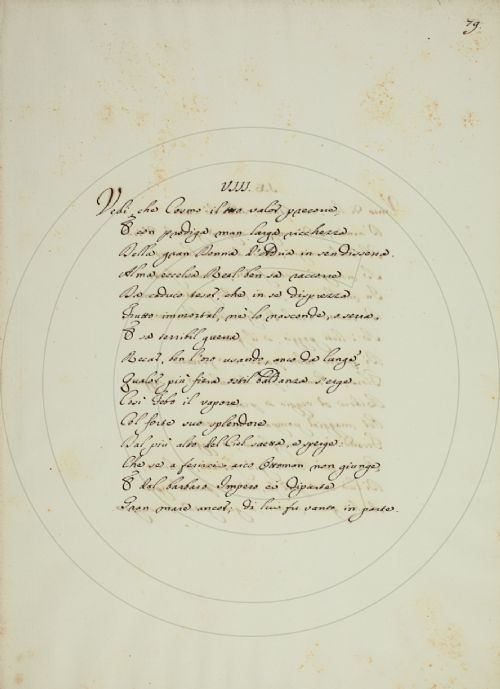 79.
VIII.
Vedi, che Cosmo il tuo valor precorre
E con prodiga man larga ricchezza
Della gran Donna l'ardua in sen disserra.
Alma eccelsa Real ben sa raccorre
Da caduco tesor, che in se disprezza
Frutto immortal, nè lo nasconde, o serra.
E sa terribil guerra
Recar, ben l'oro usando, anco da lunge,
Qualor più fiera ostil baldanza s'erge
Così Febo il vapore
Col forte suo splendore
Dal più alto del Ciel saetta, e sperge.
Che se a ferire arco Ottoman non giunge
E dal barbaro Impero ei diparte
Gran mare ancor, di lui fu vanto in parte.